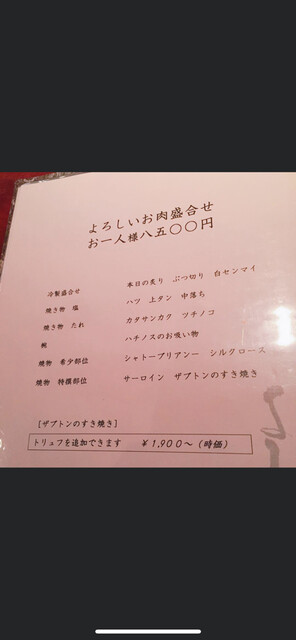 よろしいお肉盛合せ
お一人様八五〇〇円
冷製盛合せ 本日の炙り ぶつ切り 白センマイ
焼き物 塩 ハツ 上タン 中落ち
焼き物 たれ カタサンカク ツチノコ
椀 ハチノスのお吸い物
焼物 希少部位 シャトーブリアンー シルクロース
焼物 特撰部位 サーロイン ザブトンのすき焼き
［ザブトンのすき焼き］
トリュフを追加できます ￥1,900～（時価）